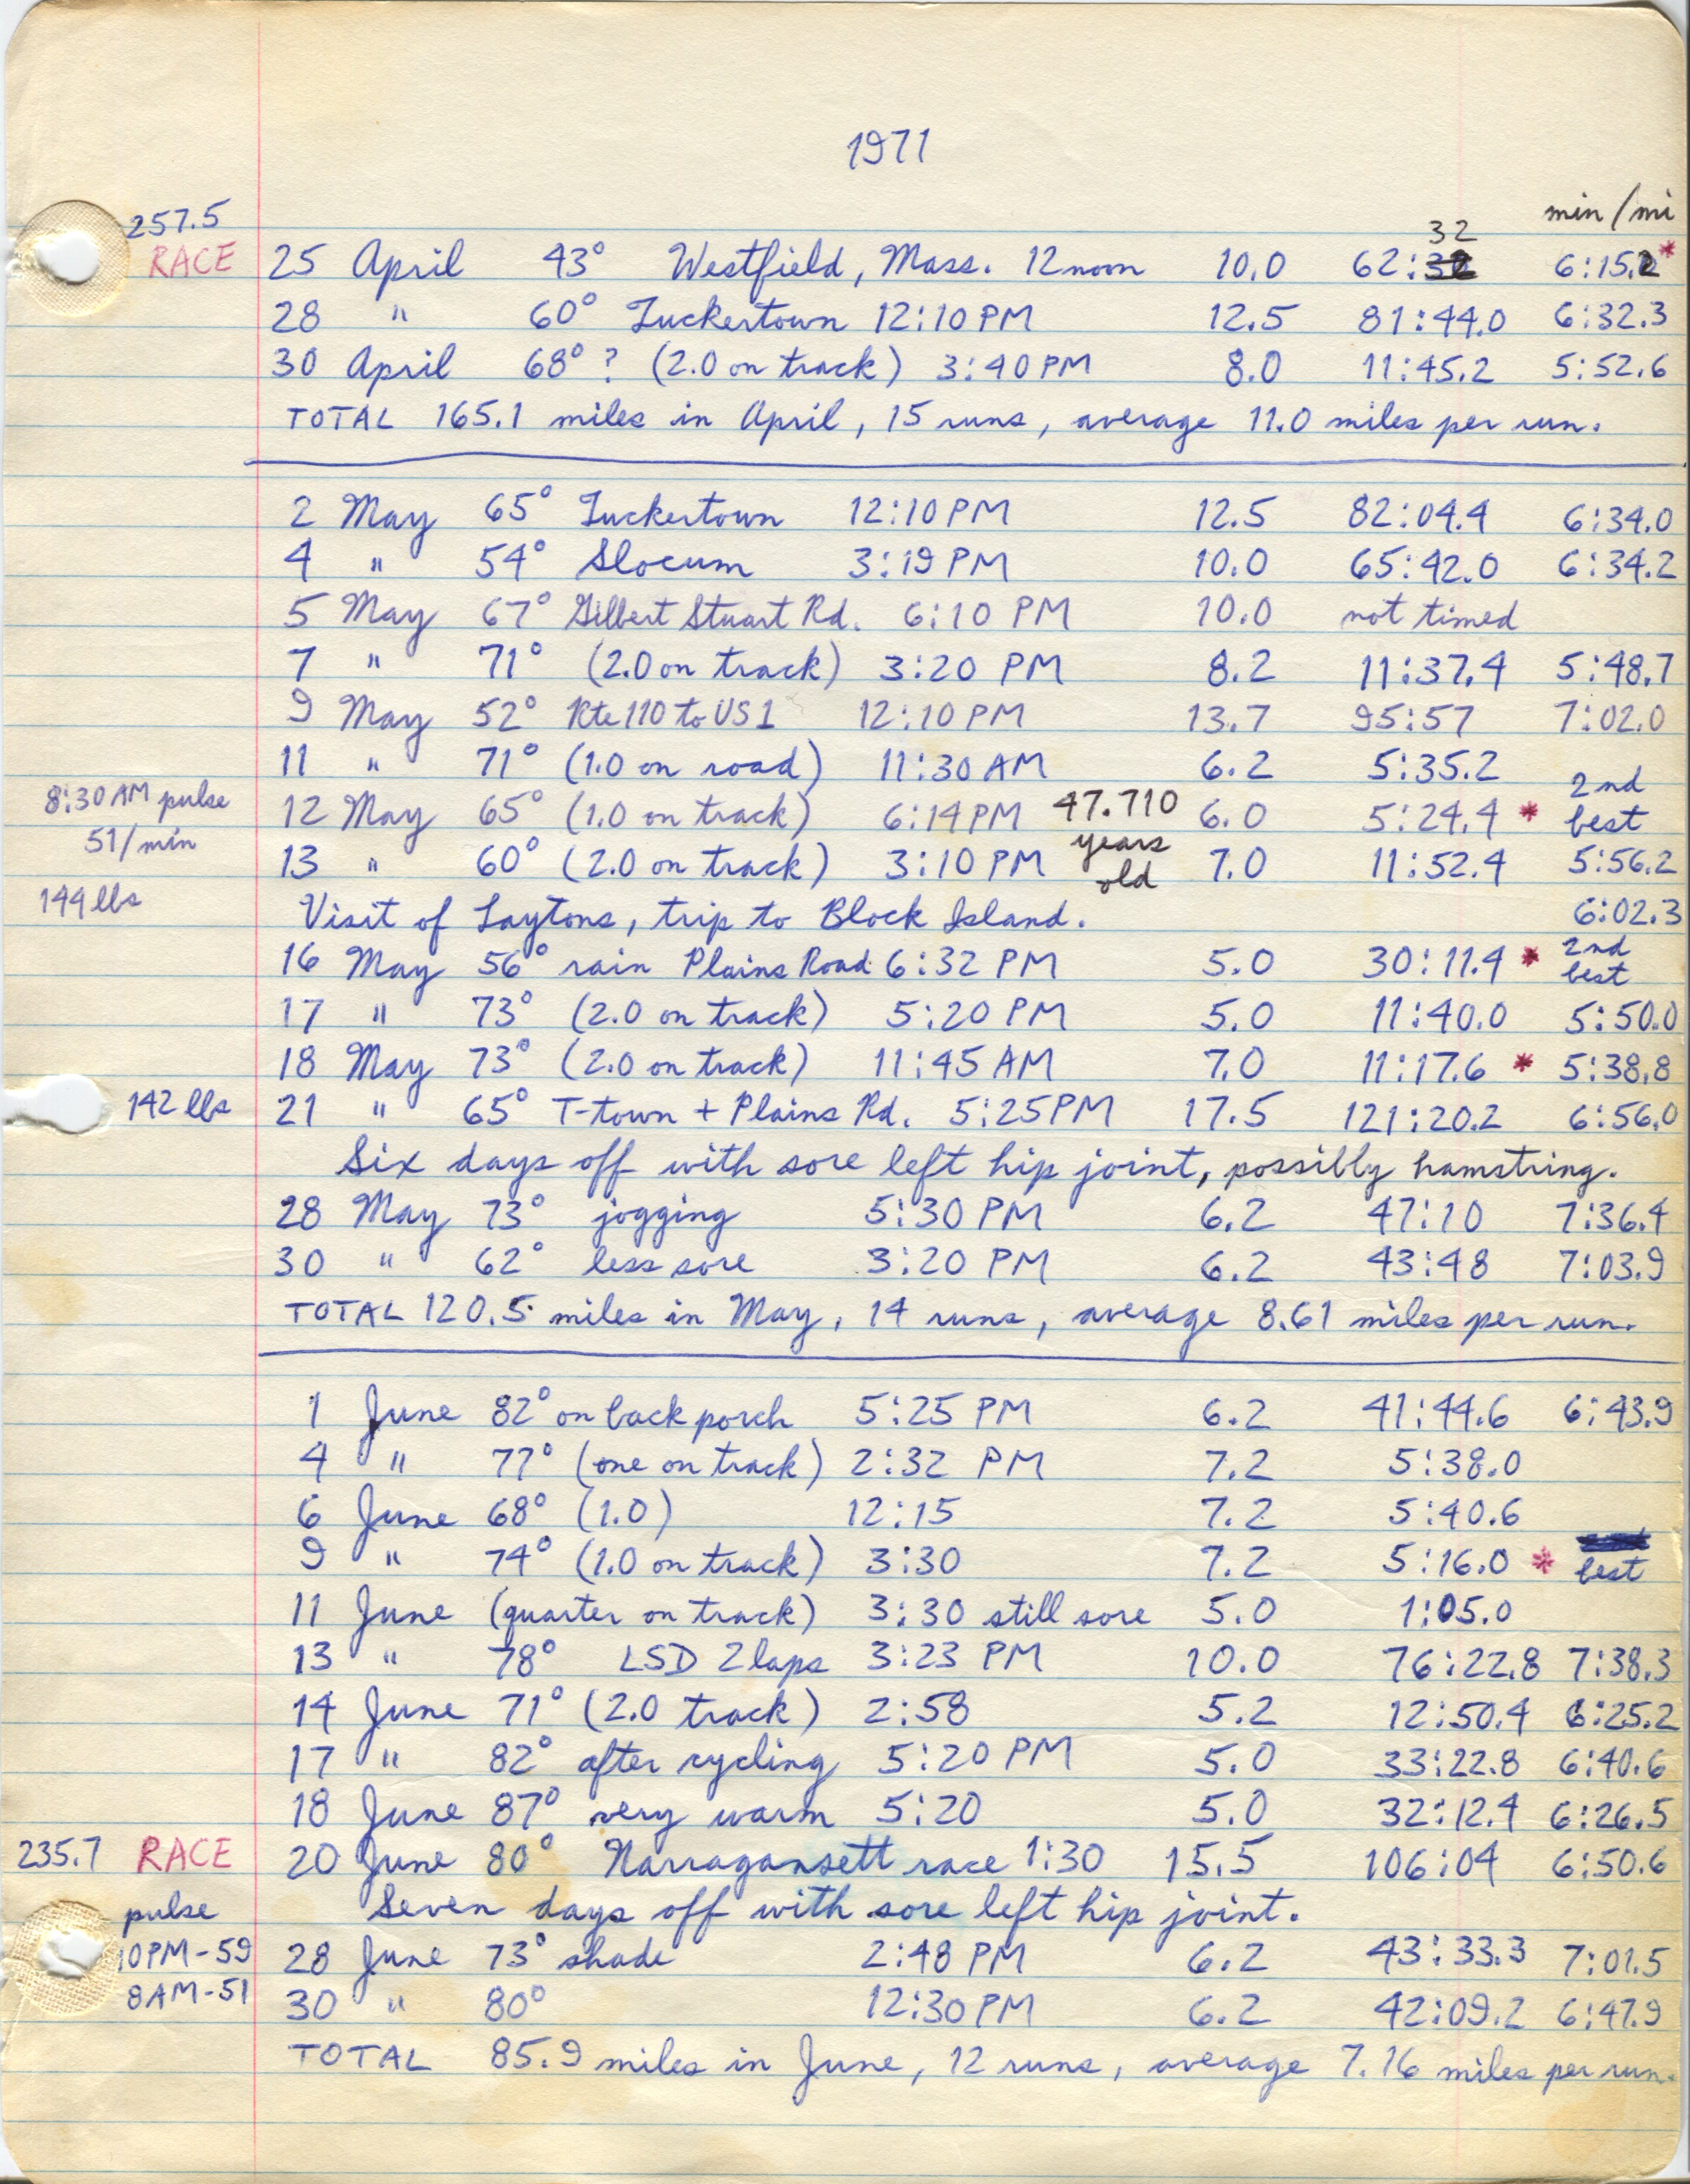 1971
257.5 min/mi
32
RACE 25 April 43° Westfield, Mass. 12 noon 10.0 62: 6:15.2*
28 " 60° Tuckertown 12:10 PM 12.5 81:44.0 6:32.3
30 April 68° ? (2.0 on track) 3:40 PM 8.0 11:45.2 5:52.6
TOTAL 165.1 miles in April, 15 runs, average 11.0 miles per run.
2 May 65° Tuckertown 12:10 PM 12.5 82:04.4 6:34.0
4 " 54° Slocum 3:19 PM 10.0 65:42.0 6:34.2
5 May 67° Gilbert Stuart Rd. 6:10 PM 10.0 not timed
7 " 71° (2.0 on track) 3:20 PM 8.2 11:37.4 5:48.7
9 May 52° Rte 110 to US 1 12:10 PM 13.7 95:57 7:02.0
11 " 71° (1.0 on road) 11:30 AM 6.2 5:35.2
8:30 AM pulse 12 May 65° (1.0 on track) 6:14 PM 47.710 6.0 5:24.4 * 2nd best
51/min years
13 " 60° (2.0 on track) 3:10 PM old 7.0 11:52.4 5:56.2
144 lbs Visit of Laytons, trip to Block Island. 6:02.3
16 May 56° rain Plains Road 6:32 PM 5.0 30:11.4 * 2nd best
17 " 73° (2.0 on track) 5:20 PM 5.0 11:40.0 5:50.0
18 May 73° (2.0 on track) 11:45 AM 7.0 11:17.6 * 5:38.8
142 lbs 21 " 65° T-town + Plains Rd. 5:25 PM 17.5 121:20.2 6:56.0
Six days off with sore left hip joint, possibly hamstring.
28 May 73° jogging 5:30 PM 6.2 47:10 7:36.4
30 " 62° less sore 3:20 PM 6.2 43:48 7:03.9
TOTAL 120.5 miles in May, 14 runs, average 8.61 miles per run.
1 June 82° on back porch 5:25 PM 6.2 41:44.6 6:43.9
4 " 77° (one on track) 2:32 PM 7.2 5:38.0
6 June 68° (1.0) 12:15 7.2 5:40.6
9 " 74° (1.0 on track) 3:30 7.2 5:16.0 * best
11 June (quarter on track) 3:30 still sore 5.0 1:05.0
13 " 78° LSD 2 laps 3:23 PM 10.0 76:22.8 7:38.3
14 June 71° (2.0 track) 2:58 5.2 12:50.4 6:25.2
17 " 82° after cycling 5:20 PM 5.0 33:22.8 6:40.6
18 June 87° very warm 5:20 5.0 32:12.4 6:26.5
235.7 RACE 20 June 80° Narragansett race 1:30 15.5 106:04 6:50.6
pulse Seven days off with sore left hip joint.
10 PM - 59 28 June 73° shade 2:48 PM 6.2 43:33.3 7:01.5
8 AM - 51 30 " 80° 12:30 PM 6.2 42:09.2 6:47.9
TOTAL 85.9 miles in June, 12 runs, average 7.16 miles per run.